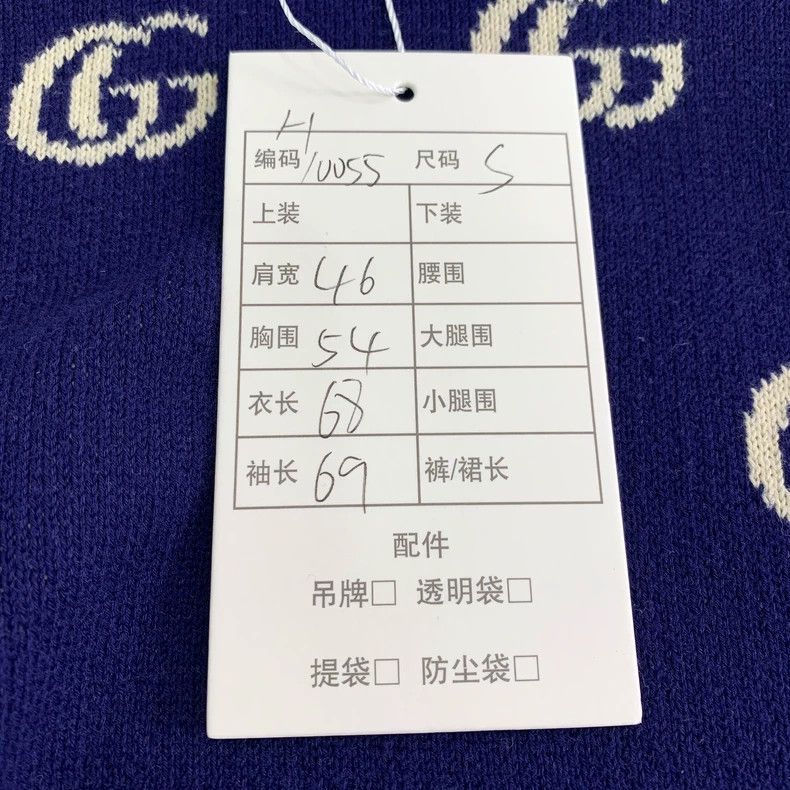 编码 H10055 尺码 S
上装 下装
肩宽 46 腰围
胸围 54 大腿围
衣长 68 小腿围
袖长 69 裤/裙长
配件
吊牌□ 透明袋□
提袋□ 防尘袋□